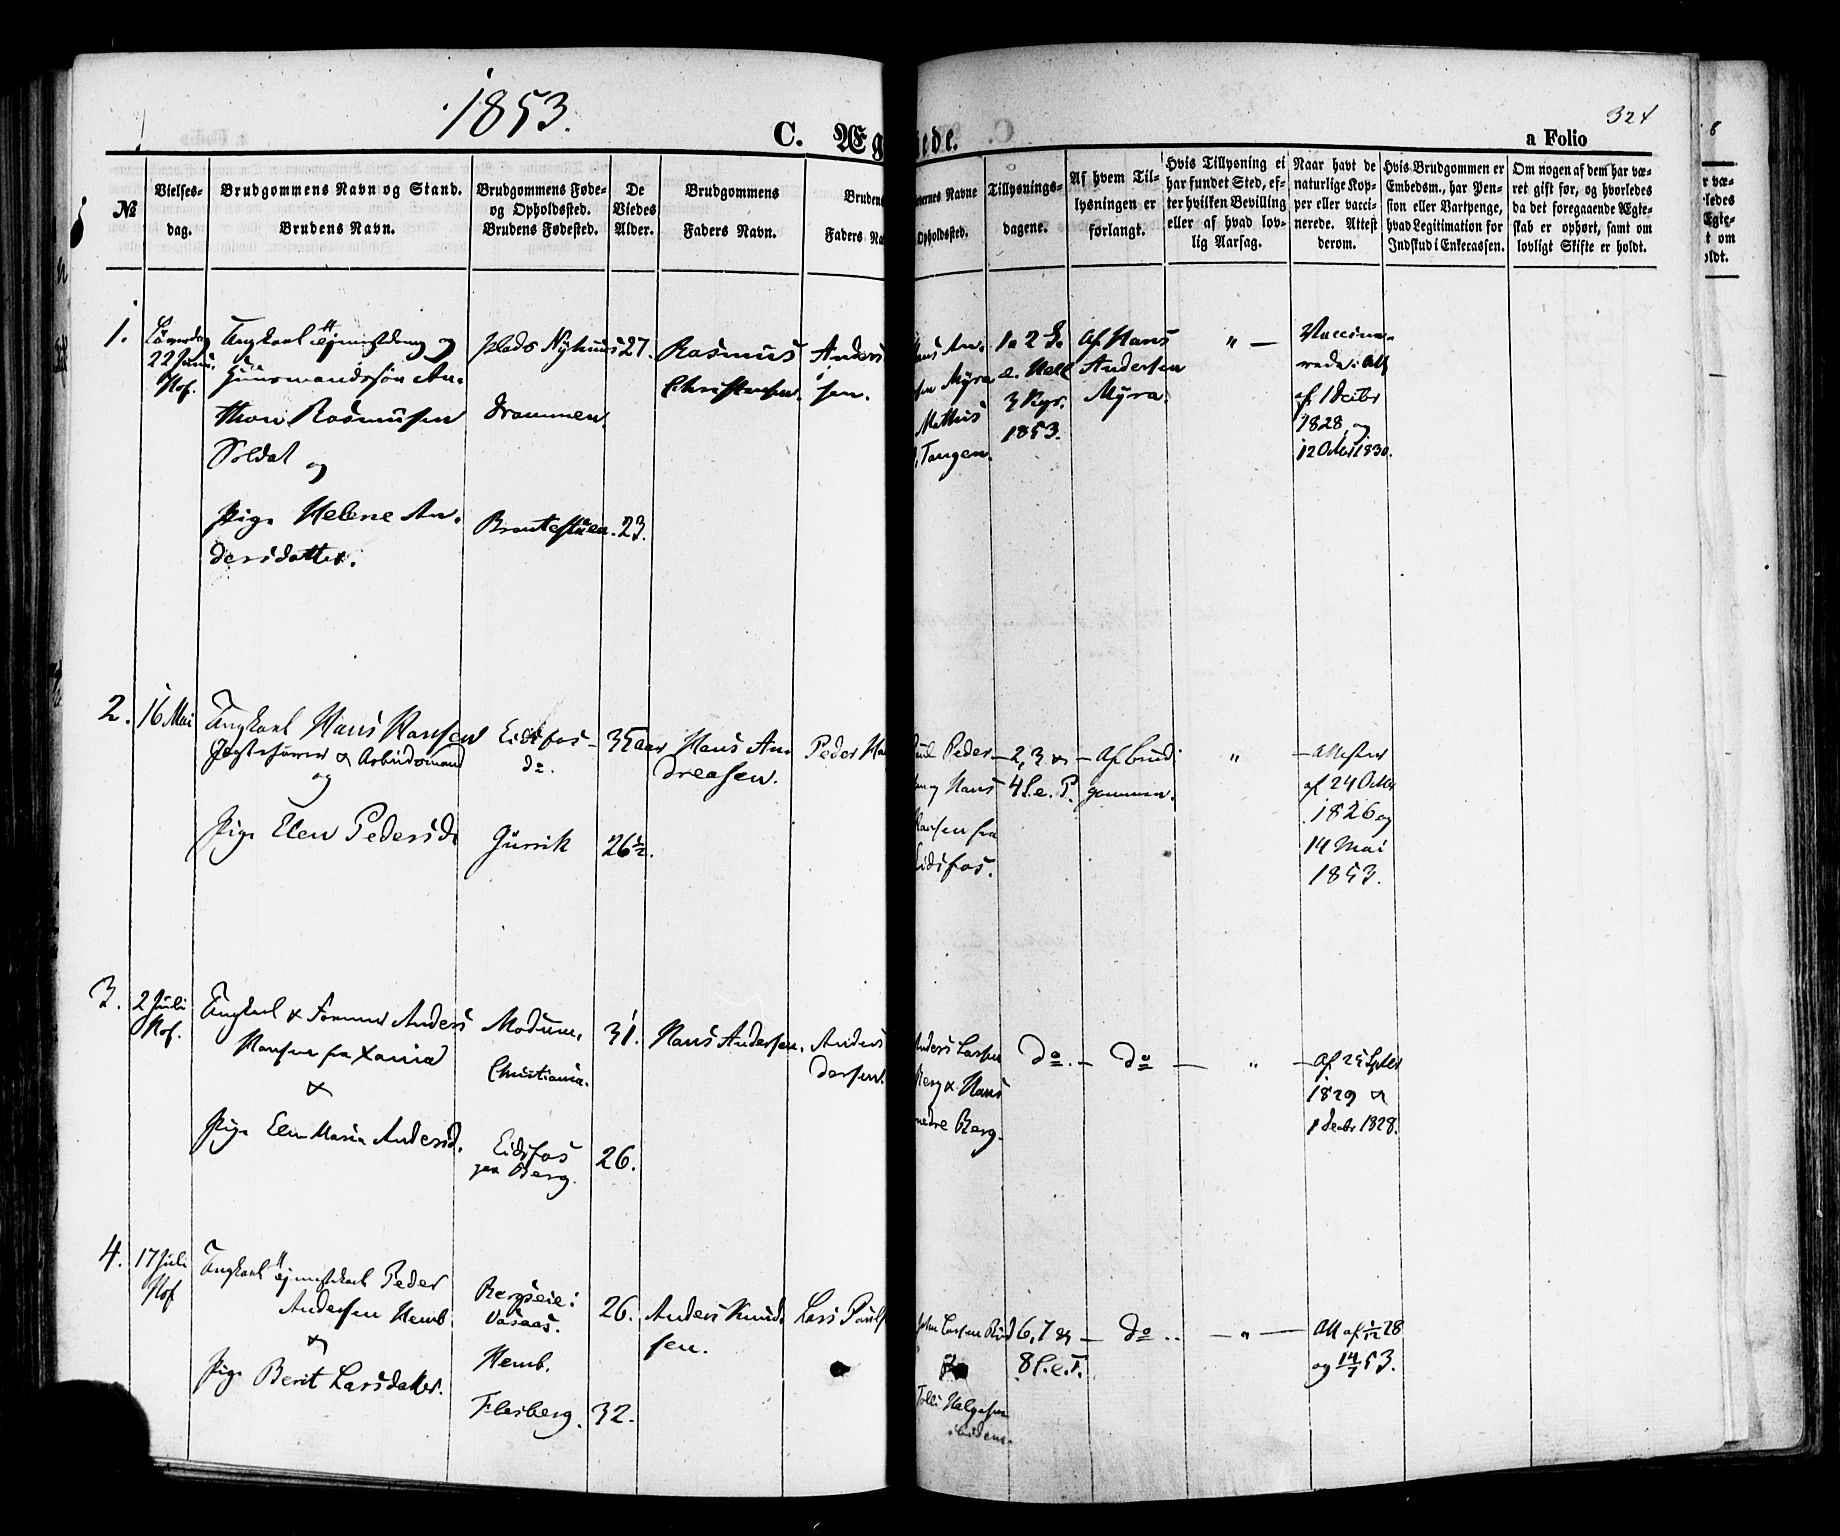 1853.
324
C. Æg
iede.
a Folio
8
№
Vielses-
dag.
Brudgommens Navn og Stand.
Brudens Navn.
Brudgommens Føde-
og Opholdssted.
Brudens Fødested.
De
Viedes
Alder.
Brudgommens
Faders Navn.
Bruden
Faders Na
vernes Navne
Opholdsted.
Tillysnings-
dagene.
Af hvem Til-
lysningen er
forlangt.
Hvis Tillysning ei
har fundet Sted, ef-
ter hvilken Bevilling
eller af hvad lov-
lig Aarsag.
Naar havt de
naturlige Kop-
per eller vacci-
nerede. Attest
derom.
Hvis Brudgommen er
Embedsm., har Pen-
sion eller Vartpenge,
hvad Legitimation for
Indskud i Enkecassen.
Om nogen af dem har væ-
ret gift før, og hvorledes
da det foregaaende Ægte-
skab er ophørt, samt om
lovligt Skifte er holdt.
1.
22
Hof.
Ungkarl og
Huusmandssøn An-
thon Rasmussen
Soldat og
Pige Helene An-
dersdatter.
Plads Nyhuus
Drammen.
27.
23.
Rasmus
Christensen.
Anders
sen.
Hans An-
sen Myra
Tangen.
1. 2 S.
3 Kgr.
1853.
Af Hans
Andersen
Myra.
" —
Vaccine-
rede: Att
af 1 Decbr
1828, og
12 Octbr 1830.
2.
16 Mai
Ungkarl Hans Hansen
& Arbeidsmand
og
Pige Elen Pedersd.
Eidsfos
do.
35 aar
26½.
Hans An-
dreasen.
Peder Ha
Peder
og Hans
Hansen fra
Eidsfos.
2, 3 &
4 S. e. P.
Af Brud-
gommen.
"
Attester
af 24 Octbr
1826 og
14 Mai
1853.
3.
2 Juli
Hof.
Ungkarl & Former Anders
Hansen fra Xania
&
Pige Elen Maria Andersd.
Modum,
Christiania.
Eidsfos
paa Berg.
31.
26.
Hans Andersen.
Anders
dersen.
Anders Larsen
Berg & Hans
nedre Berg.
do. — do — "
Af 25 Septbr
1829 &
1 Decbr 1828.
4.
17 Juli
Hof
Ungkarl Peder
Andersen Hemb.
&
Pige Berit Larsdatter.
Bergseie:
Vasaas.
Hemb.
Flesberg.
26.
32.
Anders Knud-
sen.
Lars Pauls
John Larsen
Helgesen
ibidem.
6, 7 &
8 S. e. T.
— do ..
— " —
Att af 1/12 28
og 14/7 53.